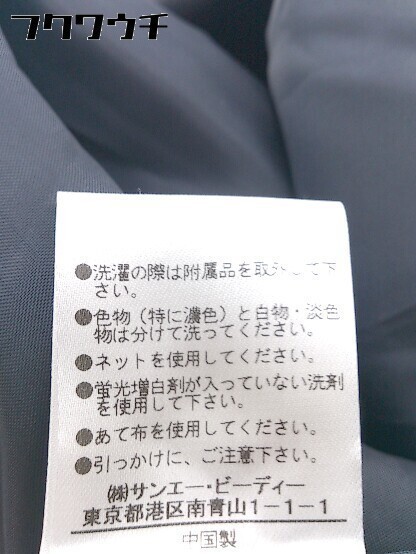 フクワウチ
●洗濯の際は附属品を取外して下
さい。
●色物(特に濃色)と白物・淡色
物は分けて洗ってください。
●ネットを使用してください。
●蛍光増白剤が入っていない洗剤
を使用して下さい。
●あて布を使用してください。
●引っかけに、ご注意下さい。
㈱サンエー・ビーディー
東京都港区南青山1-1-1
中国製